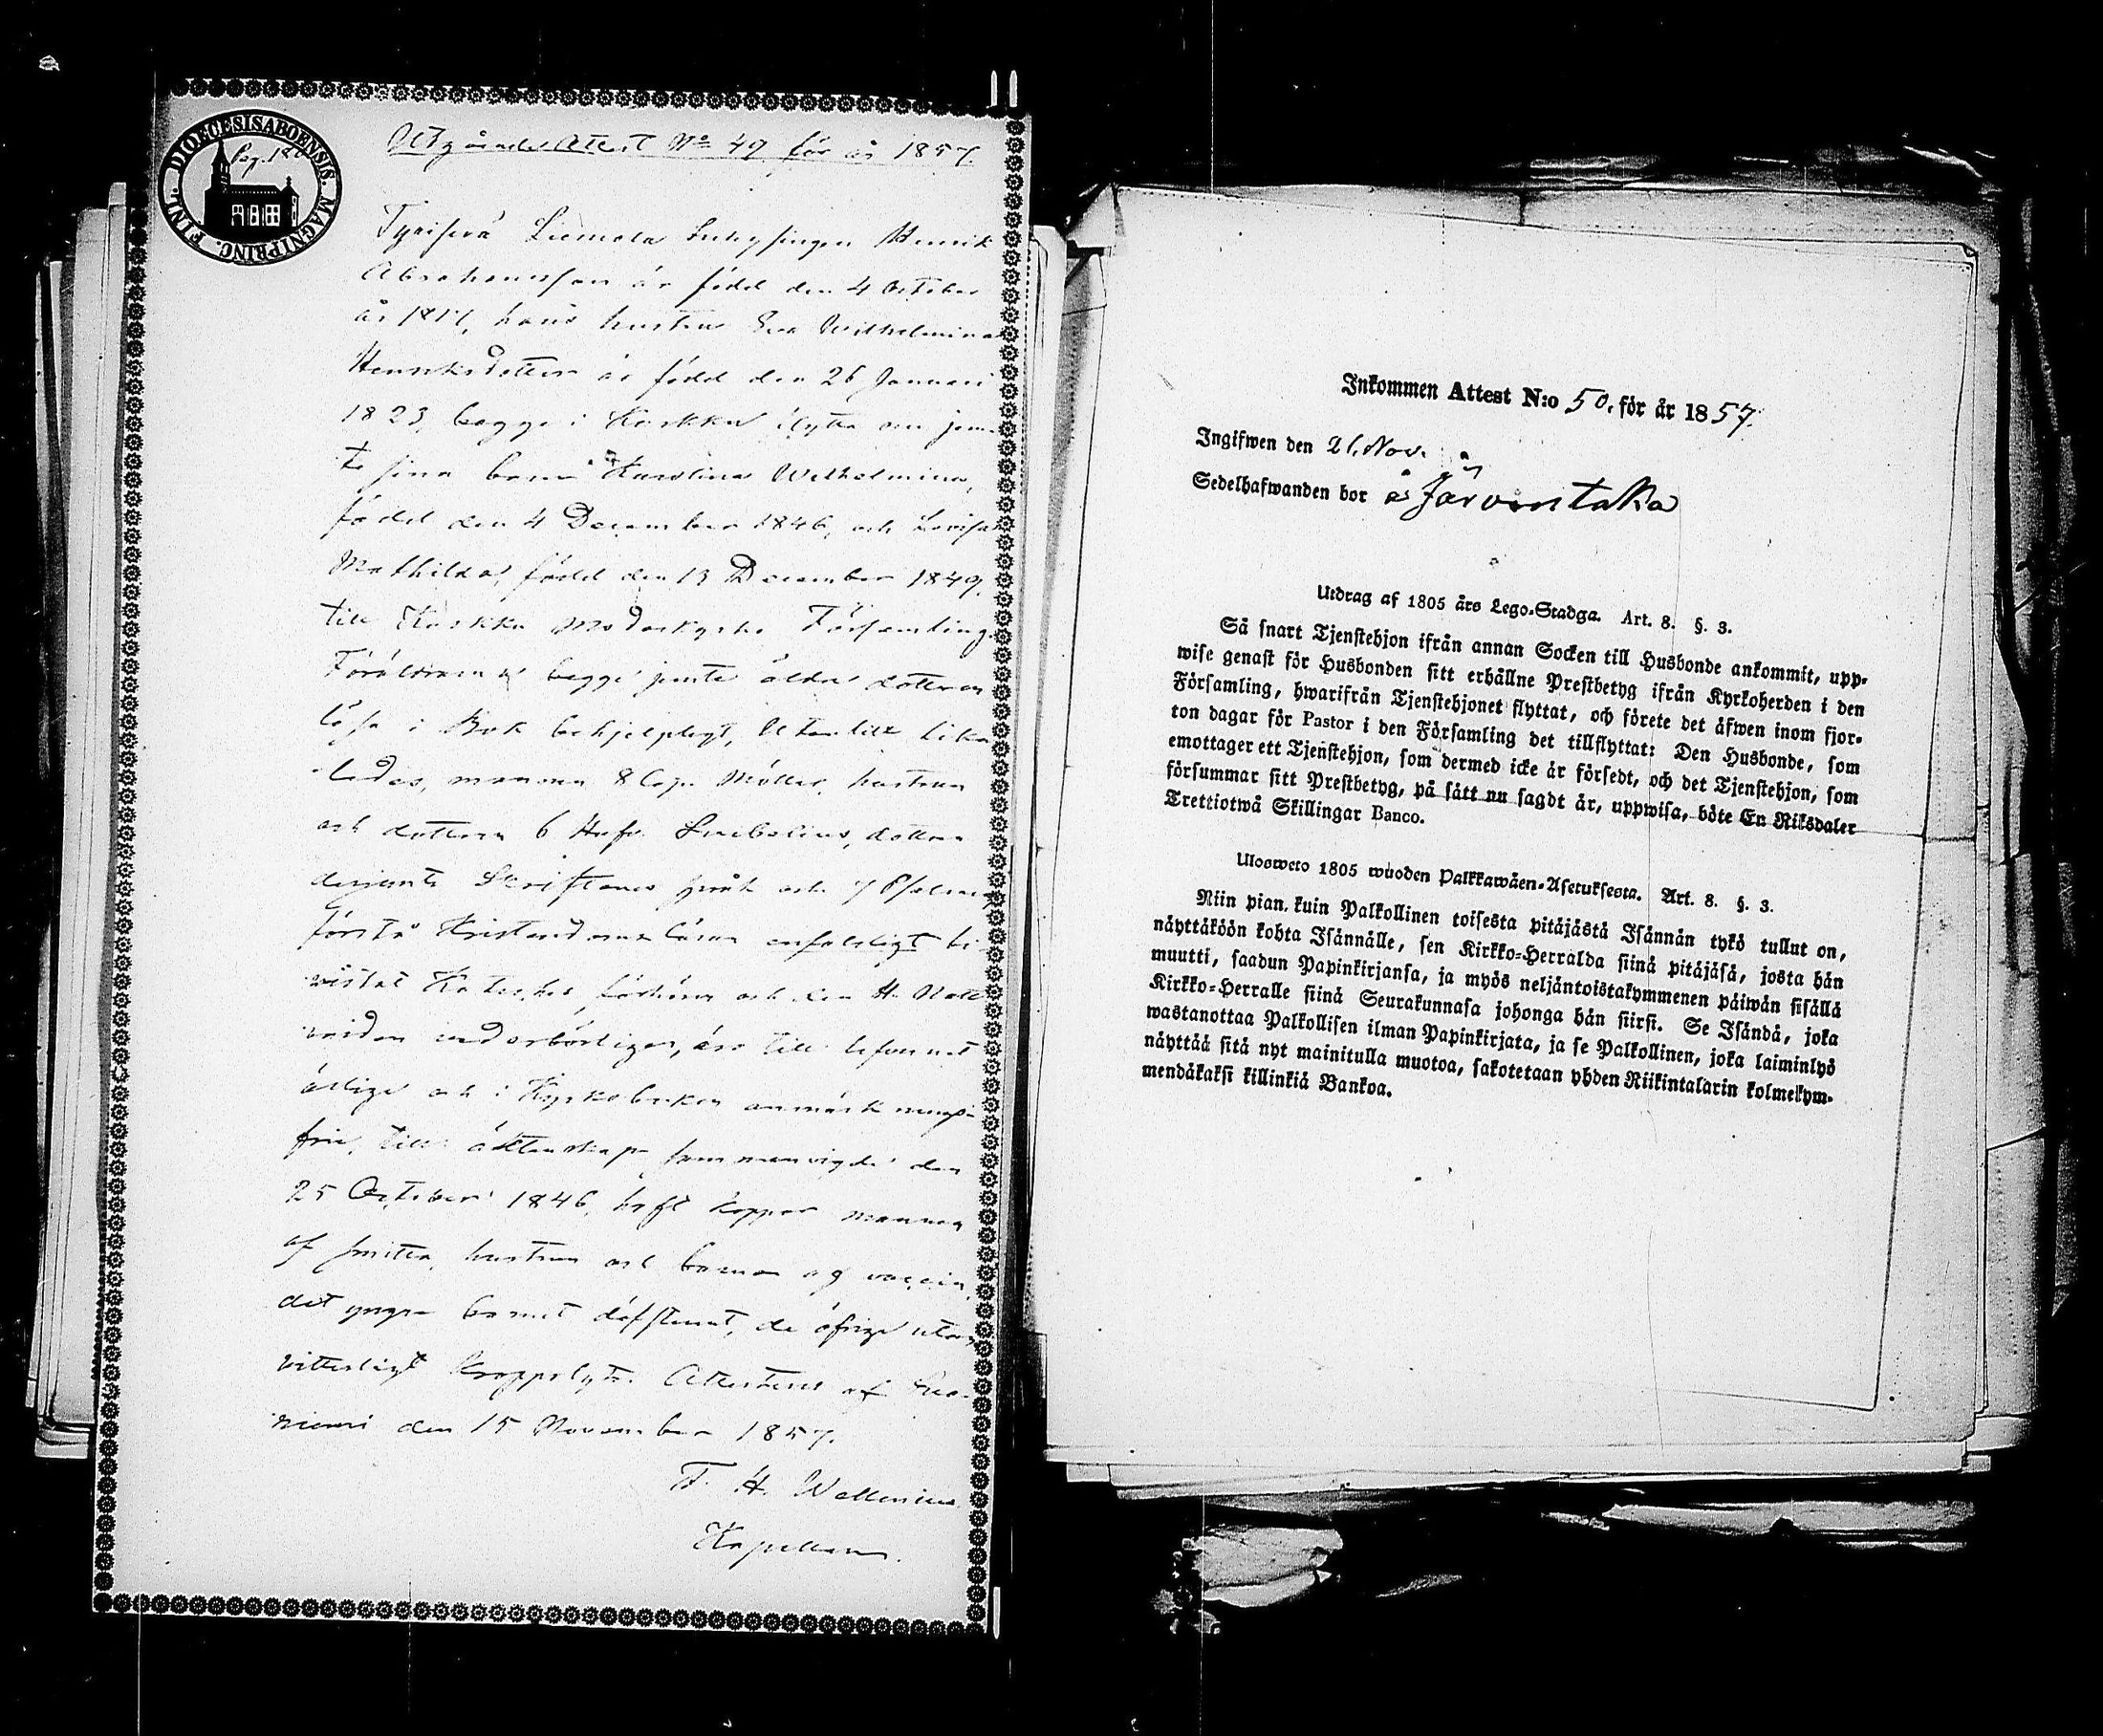 DIOECESIS ABOENSIS. MAGNI PRINC. FINL.
Pag. 180
Utgående Attest No 49 för år 1857.
Tyrisevä Liemola Inhysingen Henrik
Abrahamsson är född den 4 October
år 1817, hans hustru Eva Wilhelmina
Henriksdotter är född den 26 Januari
1823, begge i Karkku flytta nu jem-
te sina barn Karolina Wilhelmina,
född den 4 December 1846, och Lovisa
Mathilda, född den 13 December 1849,
till Karkku Moderkyrko Församling.
Föräldrarna begge jemte äldre dottern
läsa i Bok behjelpligt, Utantill lika-
ledes, mannen 8 Cap. Möller, hustrun
och dottern 6 Huf. Svebelius, dottern
derjemte Skriftenes språk och 7 Psalmer,
förstå Kristendomsläran enfaldigt, bi-
vistat förhören och den H. Natt-
varden
ärlige och i Kyrkoboken anmärknings-
frie, till äktenskap sammanvigde den
25 October 1846, haft koppor mannen
af smitta, hustrun och barnen af vaccin,
det yngre barnet döfstumt, de öfrige utan
vitterligt kroppslyte. Attesteras af Suo-
niemi den 15 November 1857.
F. H. Wallenius.
Kapellan.
Inkommen Attest N:o 50. för år 1857.
Ingifwen den 21. Nov.
Sedelhafwanden bor å Järventaka
Utdrag af 1805 års Lego-Stadga. Art. 8. §. 3.
Så snart Tjenstehjon ifrån annan Socken till Husbonde ankommit, upp-
wise genast för Husbonden sitt erhållne Prestbetyg ifrån Kyrkoherden i den
Församling, hwarifrån Tjenstehjonet flyttat, och förete det äfwen inom fjor-
ton dagar för Pastor i den Församling det tillflyttat: Den Husbonde, som
emottager ett Tjenstehjon, som dermed icke är försedt, och det Tjenstehjon, som
försummar sitt Prestbetyg, på sätt nu sagdt är, uppwisa, böte En Riksdaler
Trettiotwå Skillingar Banco.
Ulosweto 1805 wuoden Palkkawäen-Asetuksesta. Art. 8. §. 3.
Niin pian, kuin Palkollinen toisesta pitäjästä Isännän tykö tullut on,
näyttäköön kohta Isännälle, sen Kirkko-Herralda siinä pitäjäsä, josta hän
muutti, saadun Papinkirjansa, ja myös neljäntoistakymmenen päiwän sisällä
Kirkko-Herralle siinä Seurakunnasa johonga hän siirsi. Se Isändä, joka
wastanottaa Palkollisen ilman Papinkirjata, ja se Palkollinen, joka laiminlyö
näyttää sitä nyt mainitulla muotoa, sakotetaan yhden Riikintalarin kolmekym-
mendäkaksi killinkiä Bankoa.